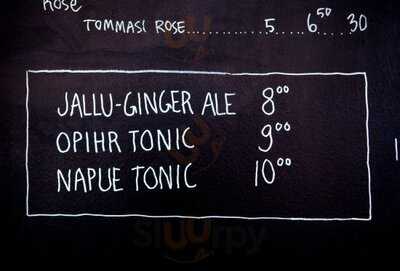 Rose
TOMMASI ROSE............5.....6.50...30
JALLU-GINGER ALE 8.00
OPIHR TONIC 9.00
NAPUE TONIC 10.00
sluurpy